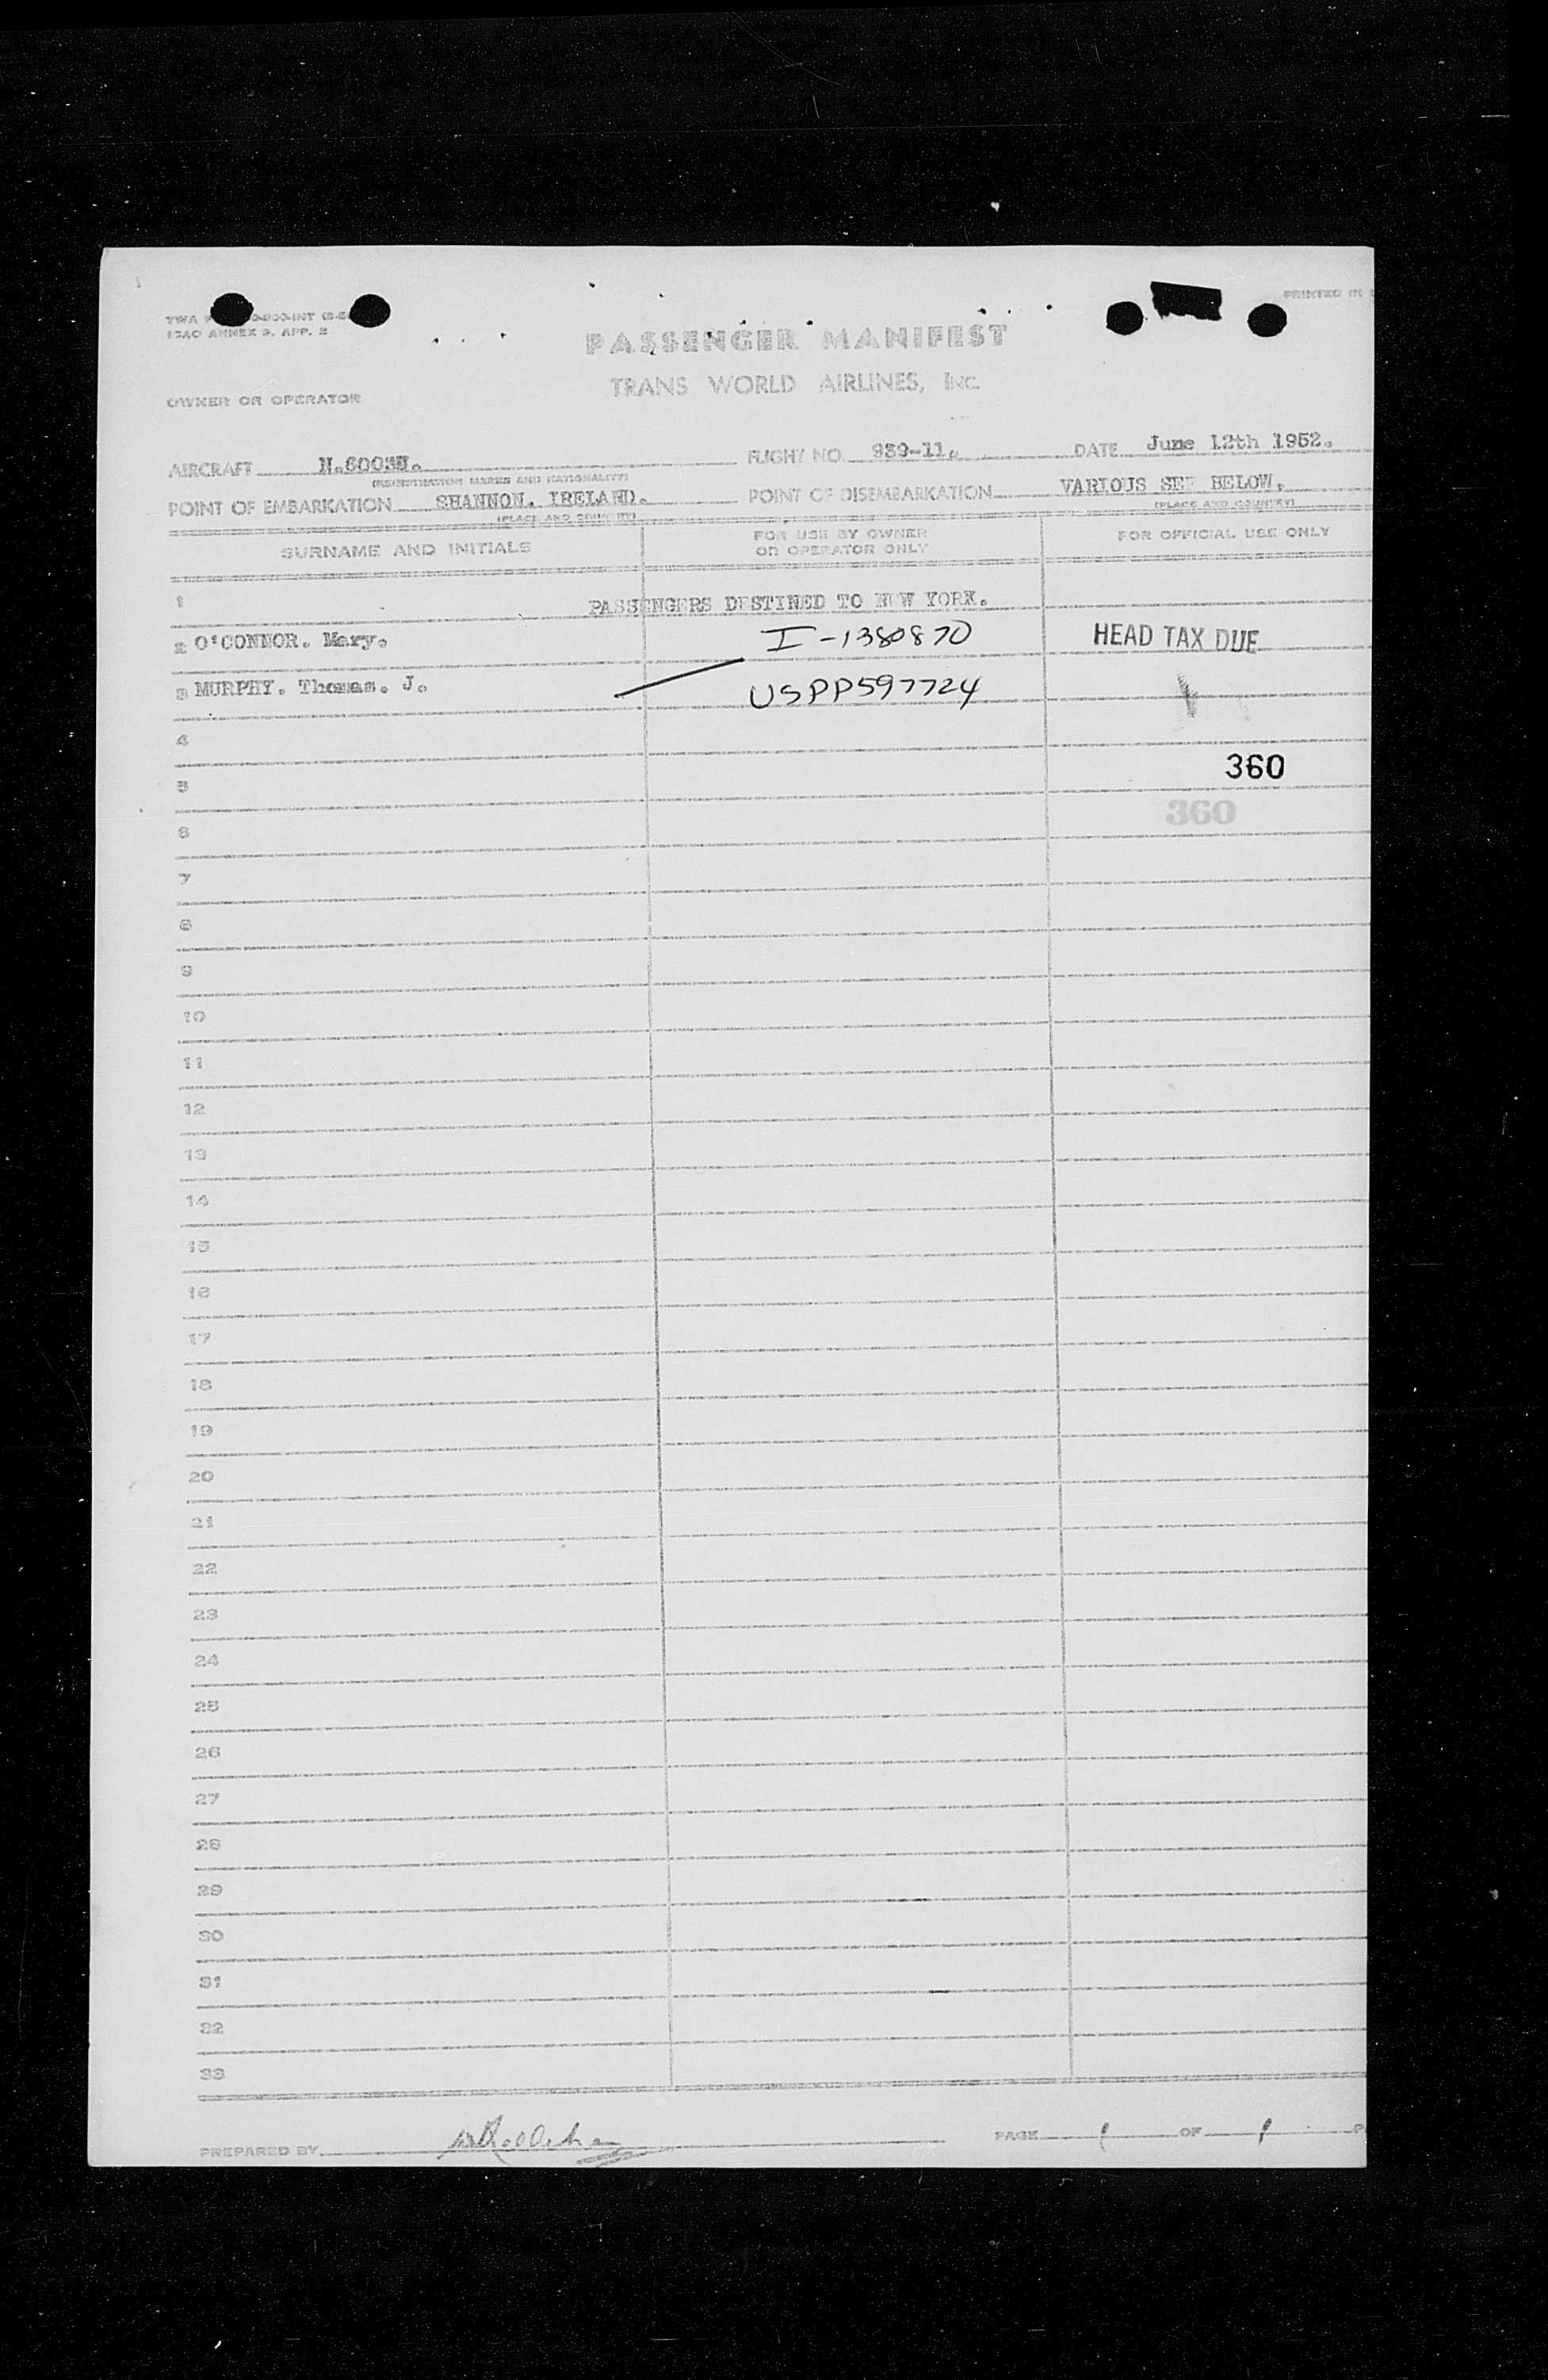 TWA
ICAO ANNEX 9. APP. 2
PRINTED IN
PASSENGER MANIFEST
TRANS WORLD AIRLINES, INC.
OWNER OR OPERATOR
AIRCRAFT FLIGHT NO. 939-11. DATE June 12th 1952.
(REGISTRATION MARKS AND NATIONALITY)
POINT OF EMBARKATION SHANNON. IRELAND. POINT OF DISEMBARKATION VARIOUS SEE BELOW.
(PLACE AND COUNTRY) (PLACE AND COUNTRY)
SURNAME AND INITIALS FOR USE BY OWNER OR OPERATOR ONLY FOR OFFICIAL USE ONLY
1 PASSENGERS DESTINED TO NEW YORK.
2 O'CONNOR. Mary. I-1380870 HEAD TAX DUE
3 MURPHY. Thomas. J. USPP597724
4
5 360
360
6
7
8
9
10
11
12
13
14
15
16
17
18
19
20
21
22
23
24
25
26
27
28
29
30
31
32
33
PREPARED BY PAGE 1 OF 1 P